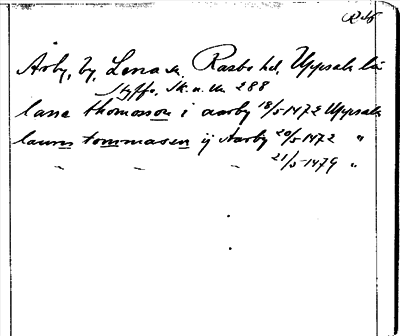 Årby, by, Lena sn. Rasbo hd, Uppsala län
Styffe, Sk. u. un. 288
lasse thomosson i aarby 18/5 1472 Uppsala
laurens tommasen ij Aarby 20/5 1472 "
" " " 21/5 1479 "